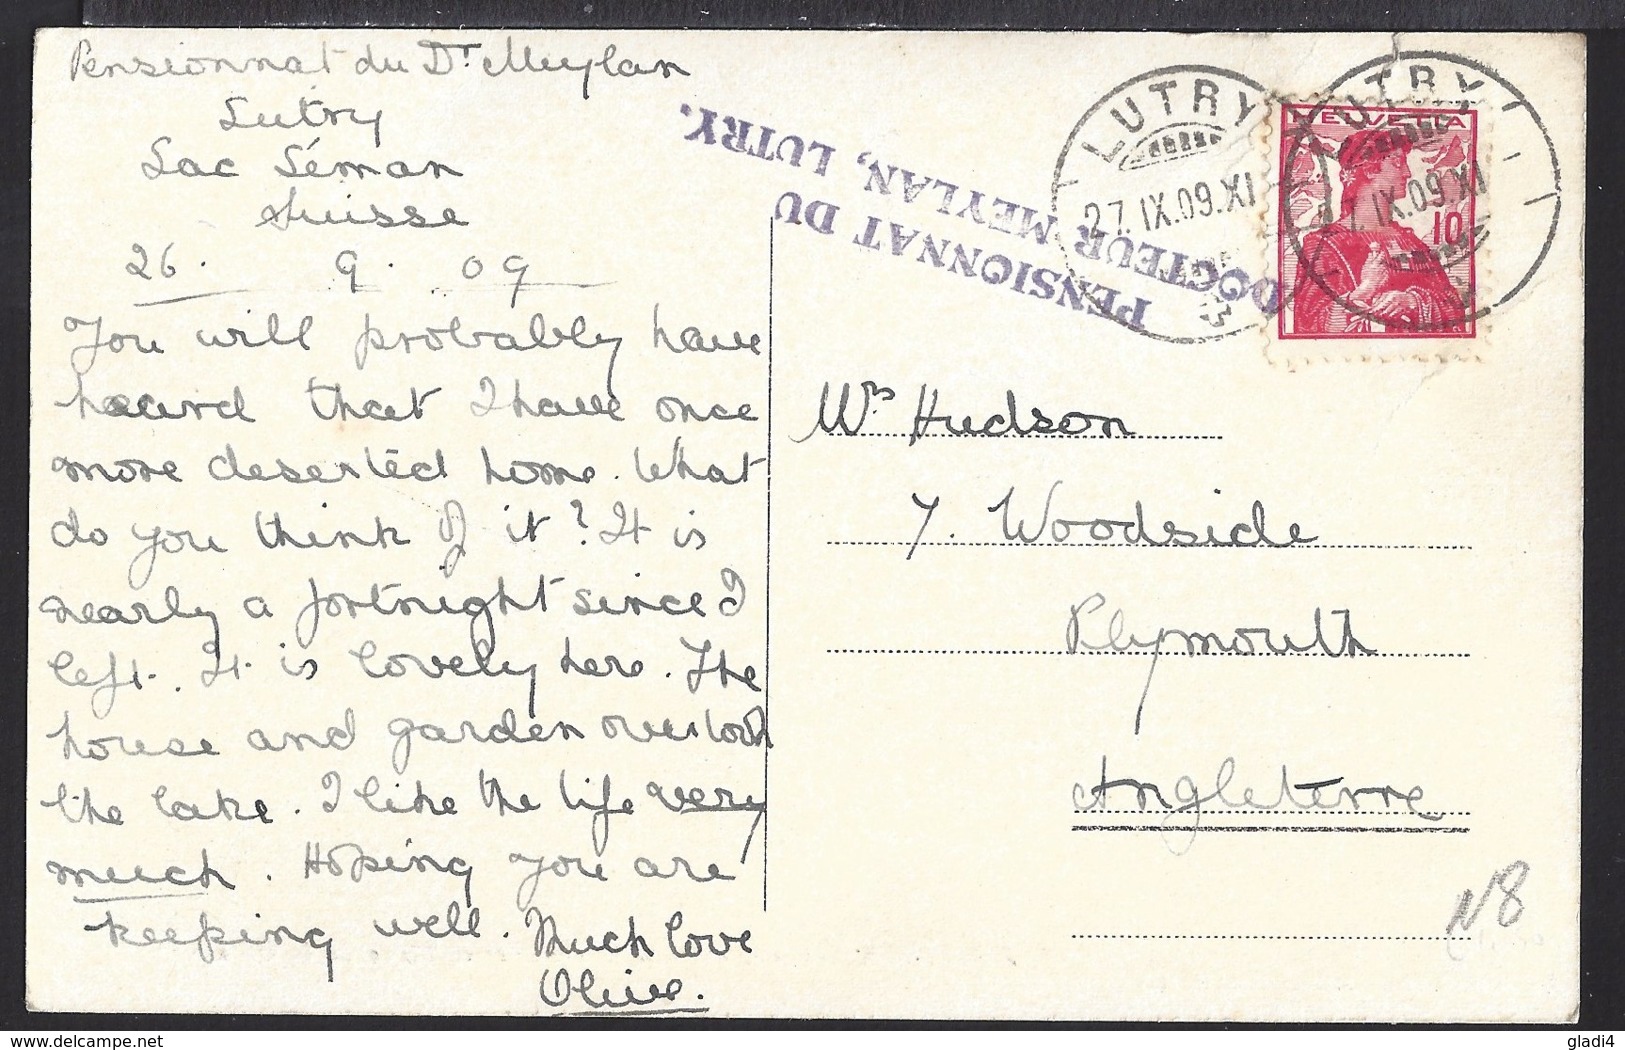 Pensionnat du Dr Meylan
Lutry
Lac Léman
Suisse
26. 9. 09
You will probably have
heard that I have once
more deserted home. What
do you think of it? It is
nearly a fortnight since I
left. It is lovely here. The
house and garden overlook
the lake. I like the life very
much. Hoping you are
keeping well. Much love
Olive.
PENSIONNAT DU
DOCTEUR MEYLAN, LUTRY.
LUTRY
27.IX.09.XI
LUTRY
27.IX.09.XI
HELVETIA
10
Mrs Hudson
7. Woodside
Plymouth
Angleterre
N8
gladi4